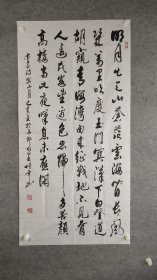 明月出天山蒼茫雲海間長風
幾萬里吹度玉門關漢下白登道
胡窺青海灣由來征戰地不見有
人還戍客望邊色思歸多苦顏
高樓當此夜嘆息未應閑
李白詩關山月